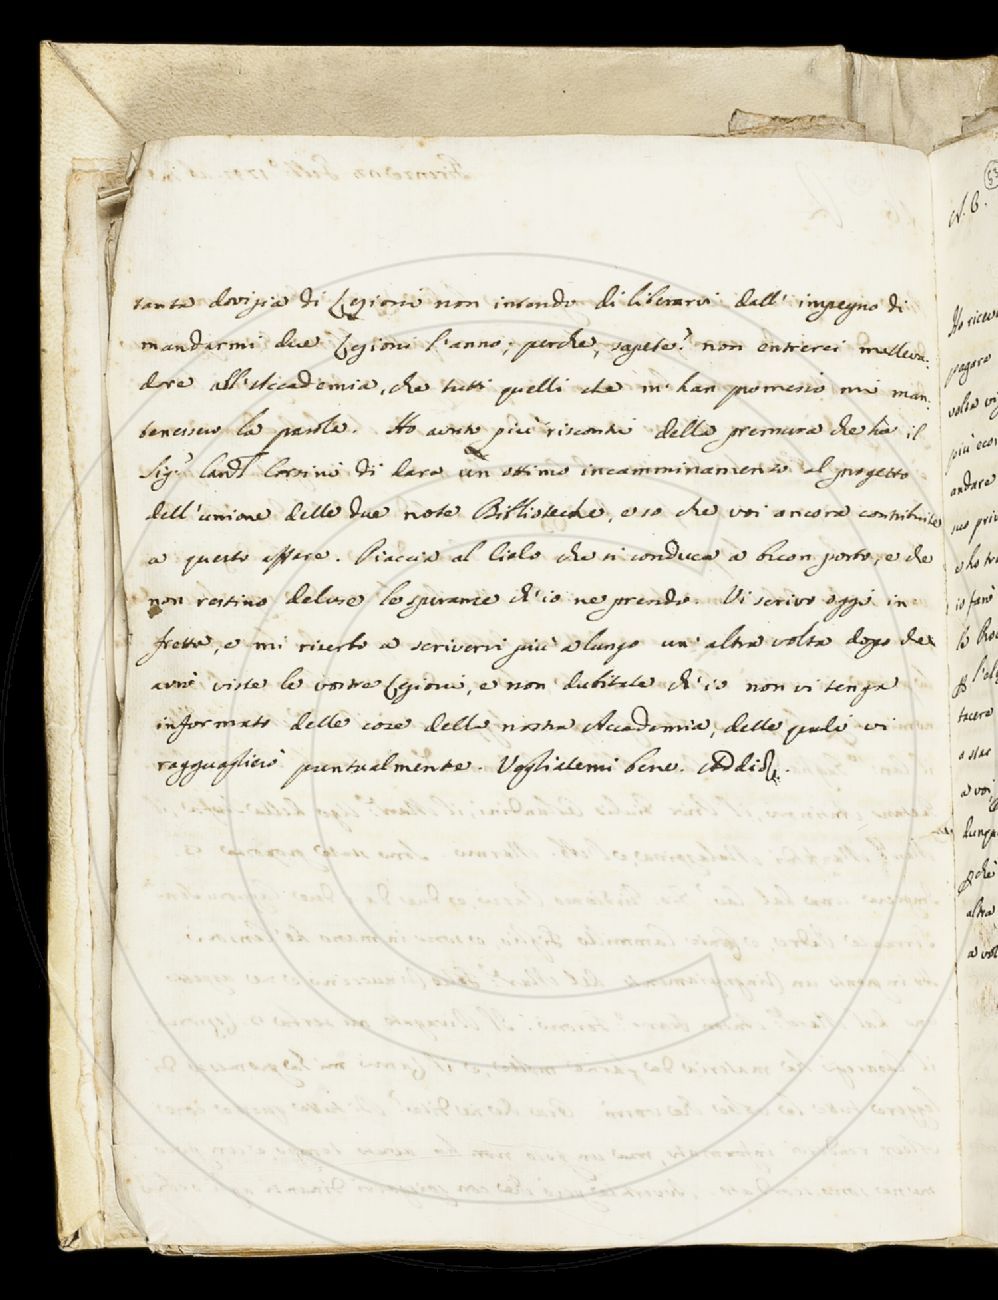 tanta dovizia di Lezioni non intendo di liberarvi dall' impegno di
mandarmi due Lezioni l'anno; perche, sapete? non entrerei malleva:
dore all'Accademia, che tutti quelli che m' han promesso mi man:
tenessero la parola. Ho avuto più riscontri della premura che ha il
Sig.r Card.l Corsini di dare un ottimo incamminamento al progetto
dell'unione delle due note Biblioteche, e so che voi ancora contribuite
a questo affare. Piaccia al Cielo che si conduca a buon porto, e che
non restino deluse le speranze ch'io ne prendo. Vi scrivo oggi in
fretta, e mi riserbo a scrivervi più a lungo un' altra volta dopo che
avrò viste le vostre Lezioni, e non dubitate ch'io non vi tenga
informato delle cose della nostra Accademia, delle quali vi
ragguaglierò puntualmente. Vogliatemi bene. Addio.
53
N. B.
Ho ricevu
pagare
volta vi
più econ
andare
suo priv
e ho tro
io farò
le
l'al
tacere
o stac
a voi
dunqu
che
altra
a vol